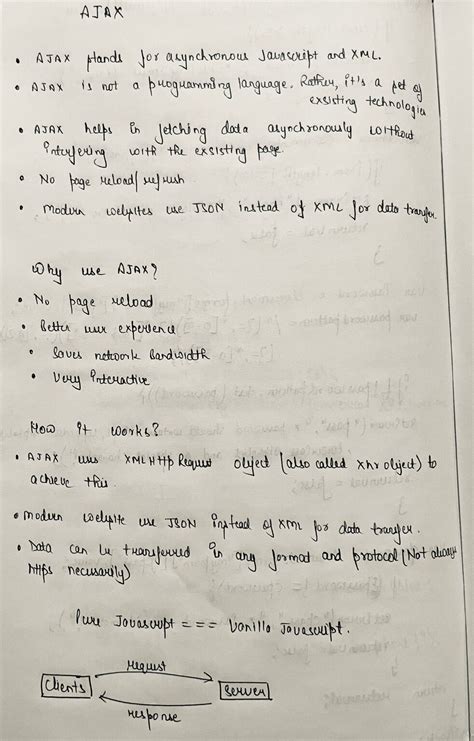 AJAX
• AJAX stands for asynchronous Javascript and XML.
• AJAX is not a programming language. Rather, it's a set of
exsisting technologies
• AJAX helps in fetching data asynchronously without
interfering with the exsisting page.
• No page reload/refresh
• Modern websites use JSON instead of XML for data transfer
Why use AJAX?
• No page reload
• Better user experience
• Saves network Bandwidth
• Very Interactive
How it works?
• AJAX uses XMLHttpRequest object (also called xhr object) to
achieve this.
• Modern website use JSON instead of XML for data transfer.
• Data can be transferred in any format and protocol (Not always
https necessarily)
Pure Javascript === Vanilla Javascript.
request
Clients
Server
response